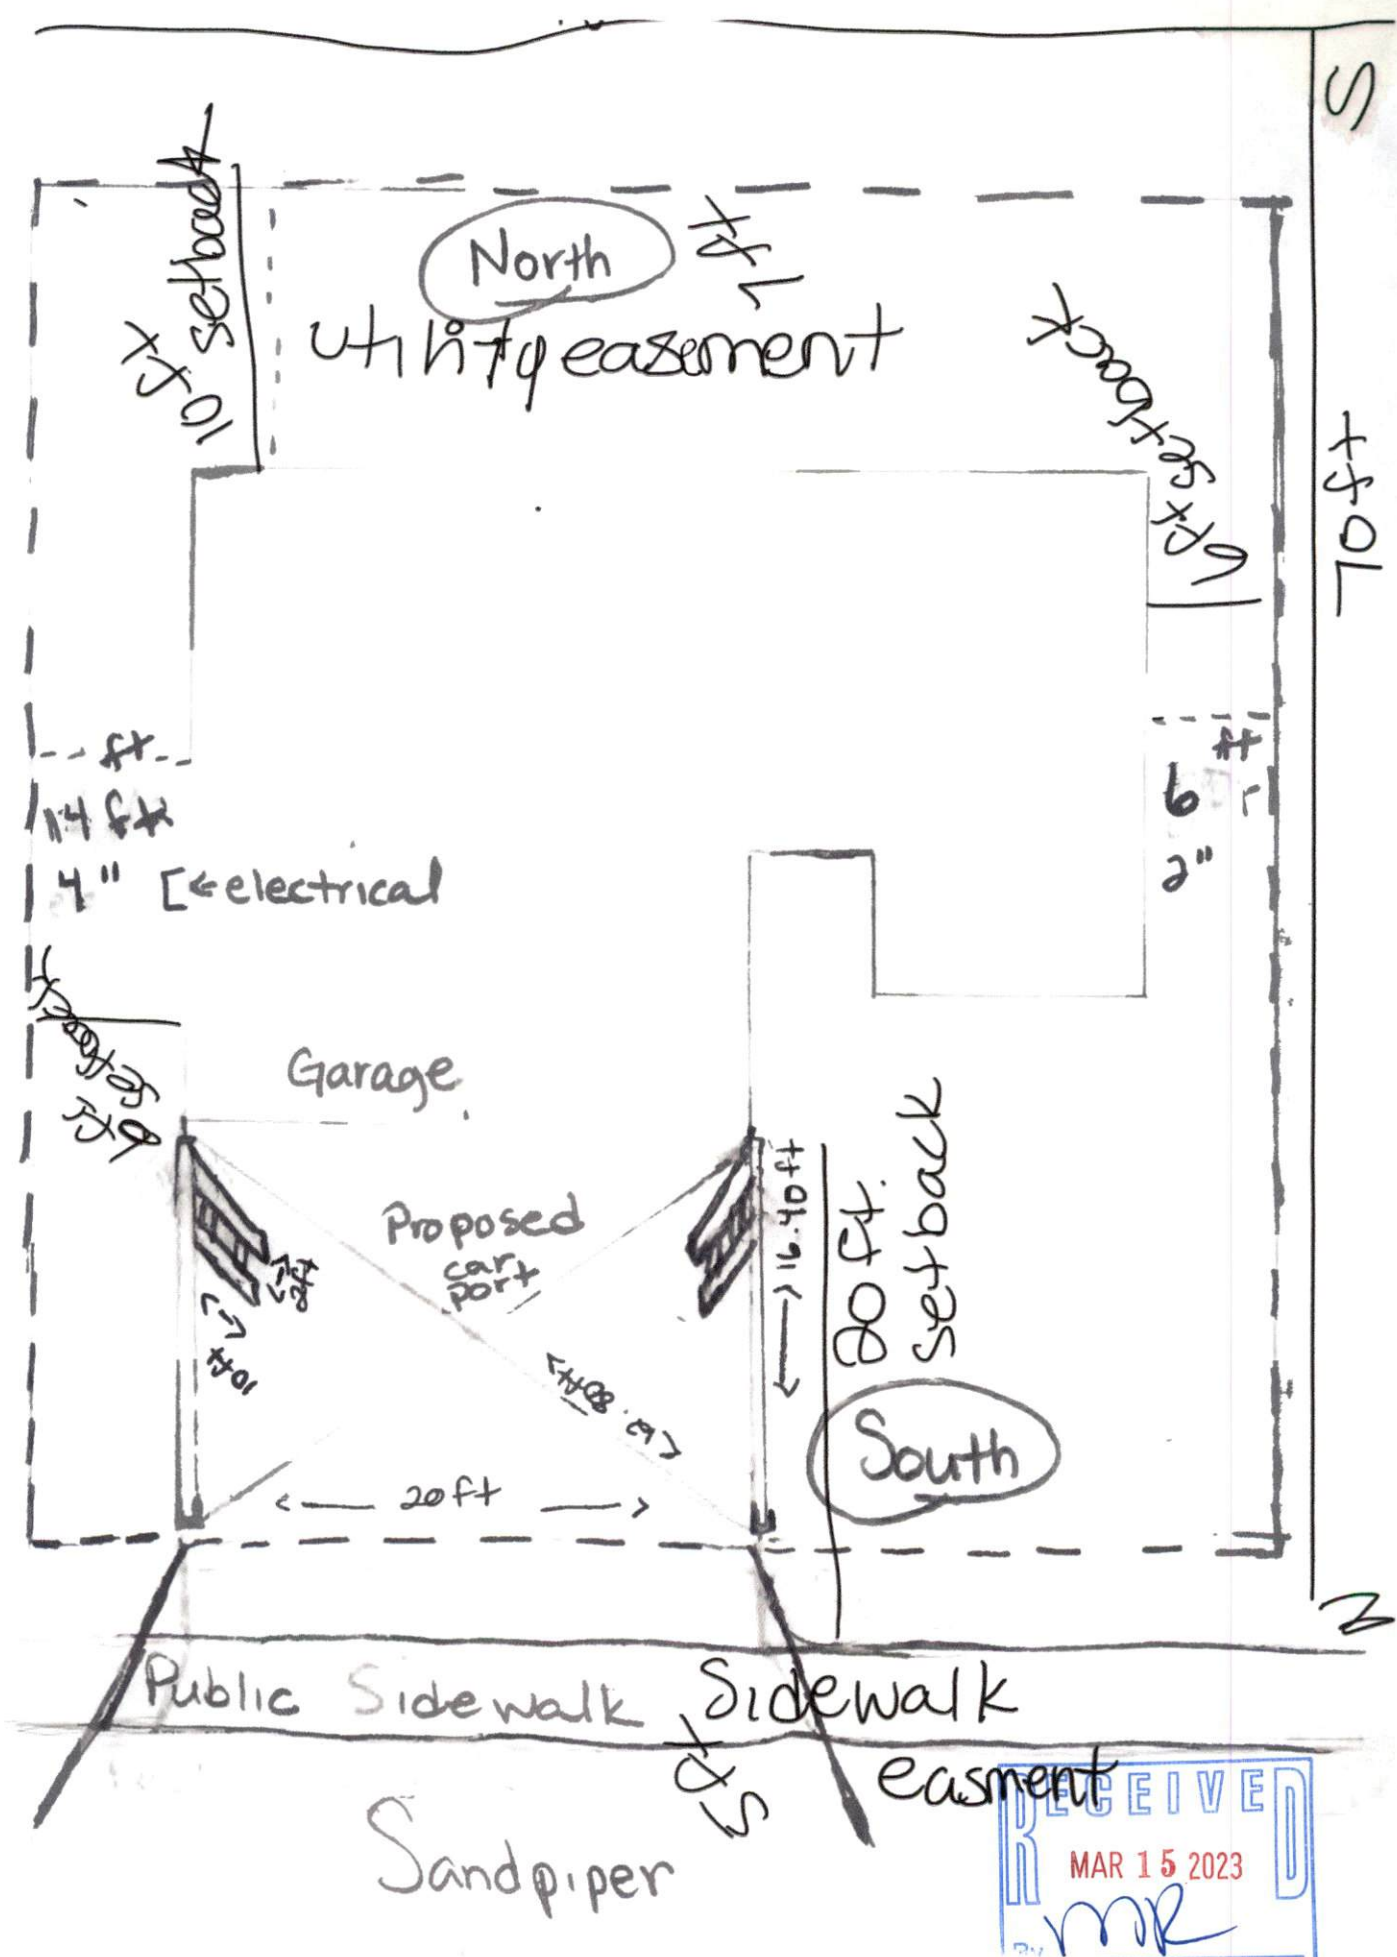 S
10 ft setback
North
7 ft
utility easement
6 ft setback
70ft
ft
14 ft
4" [← electrical
ft
6
2"
6 ft
Garage
Proposed
car
port
2ft
10ft
16.40ft
20 ft.
setback
South
20ft
N
Public Sidewalk
Sidewalk
5 ft
easment
Sandpiper
RECEIVED
MAR 15 2023
BY MR